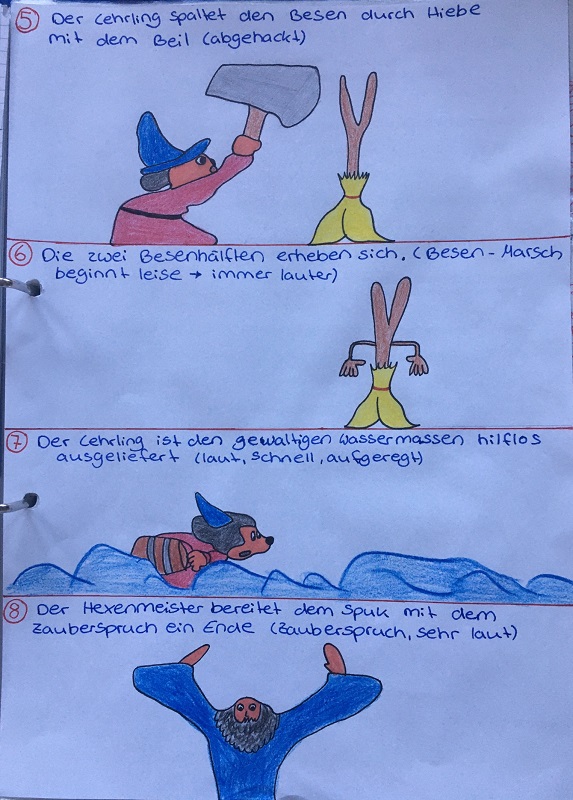 5 Der Lehrling spaltet den Besen durch Hiebe
mit dem Beil (abgehackt)
6 Die zwei Besenhälften erheben sich. (Besen-Marsch
beginnt leise → immer lauter)
7 Der Lehrling ist den gewaltigen Wassermassen hilflos
ausgeliefert (laut, schnell, aufgeregt)
8 Der Hexenmeister bereitet dem Spuk mit dem
Zauberspruch ein Ende (Zauberspruch, sehr laut)